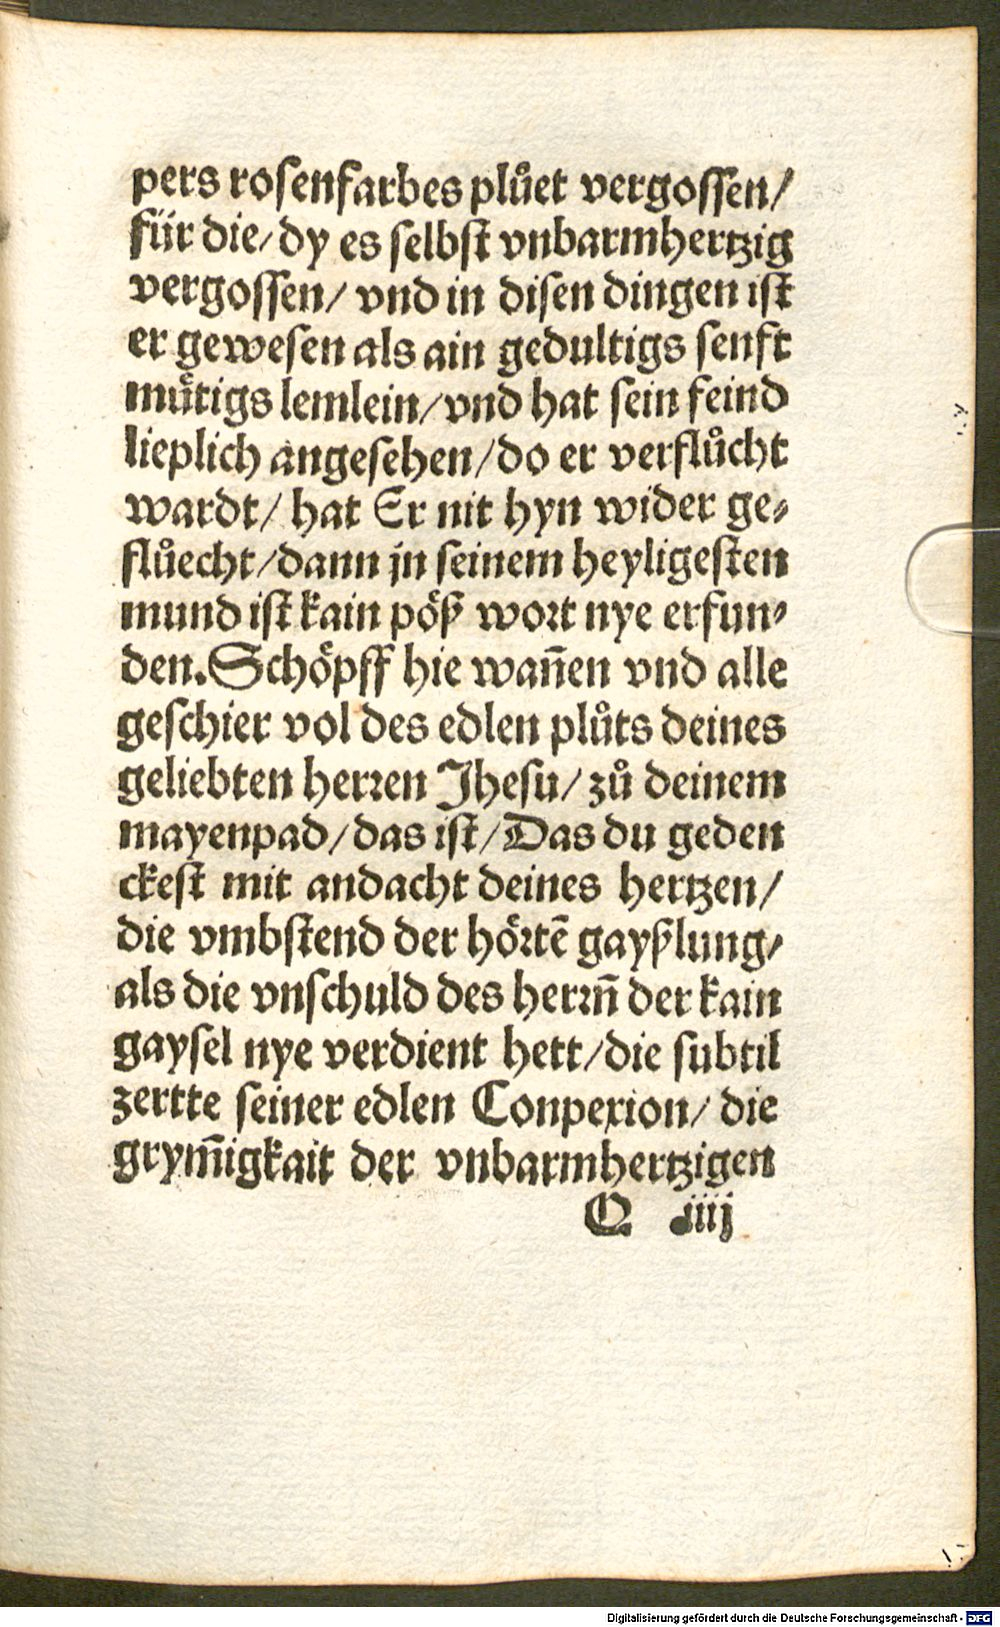 pers rosenfarbes pluͦet vergossen/
für die/ dy es selbst vnbarmhertzig
vergossen/ vnd in disen dingen ist
er gewesen als ain gedultigs senft
muͤtigs lemlein/ vnd hat sein feind
lieplich angesehen/ do er verfluͦcht
wardt/ hat Er nit hyn wider ge-
fluͦecht/ dann jn seinem heyligesten
mund ist kain poͤß wort nye erfun-
den. Schoͤpff hie wañen vnd alle
geschier vol des edlen pluͦts deines
geliebten herren Jhesu/ zuͦ deinem
mayenpad/ das ist/ Das du geden
ckest mit andacht deines hertzen/
die vmbstend der hoͤrtē gayßlung/
als die vnschuld des herrn̄ der kain
gaysel nye verdient hett/ die subtil
zertte seiner edlen Conpexion/ die
grym̄igkait der vnbarmhertzigen
Q iiij
Digitalisierung gefördert durch die Deutsche Forschungsgemeinschaft - DFG